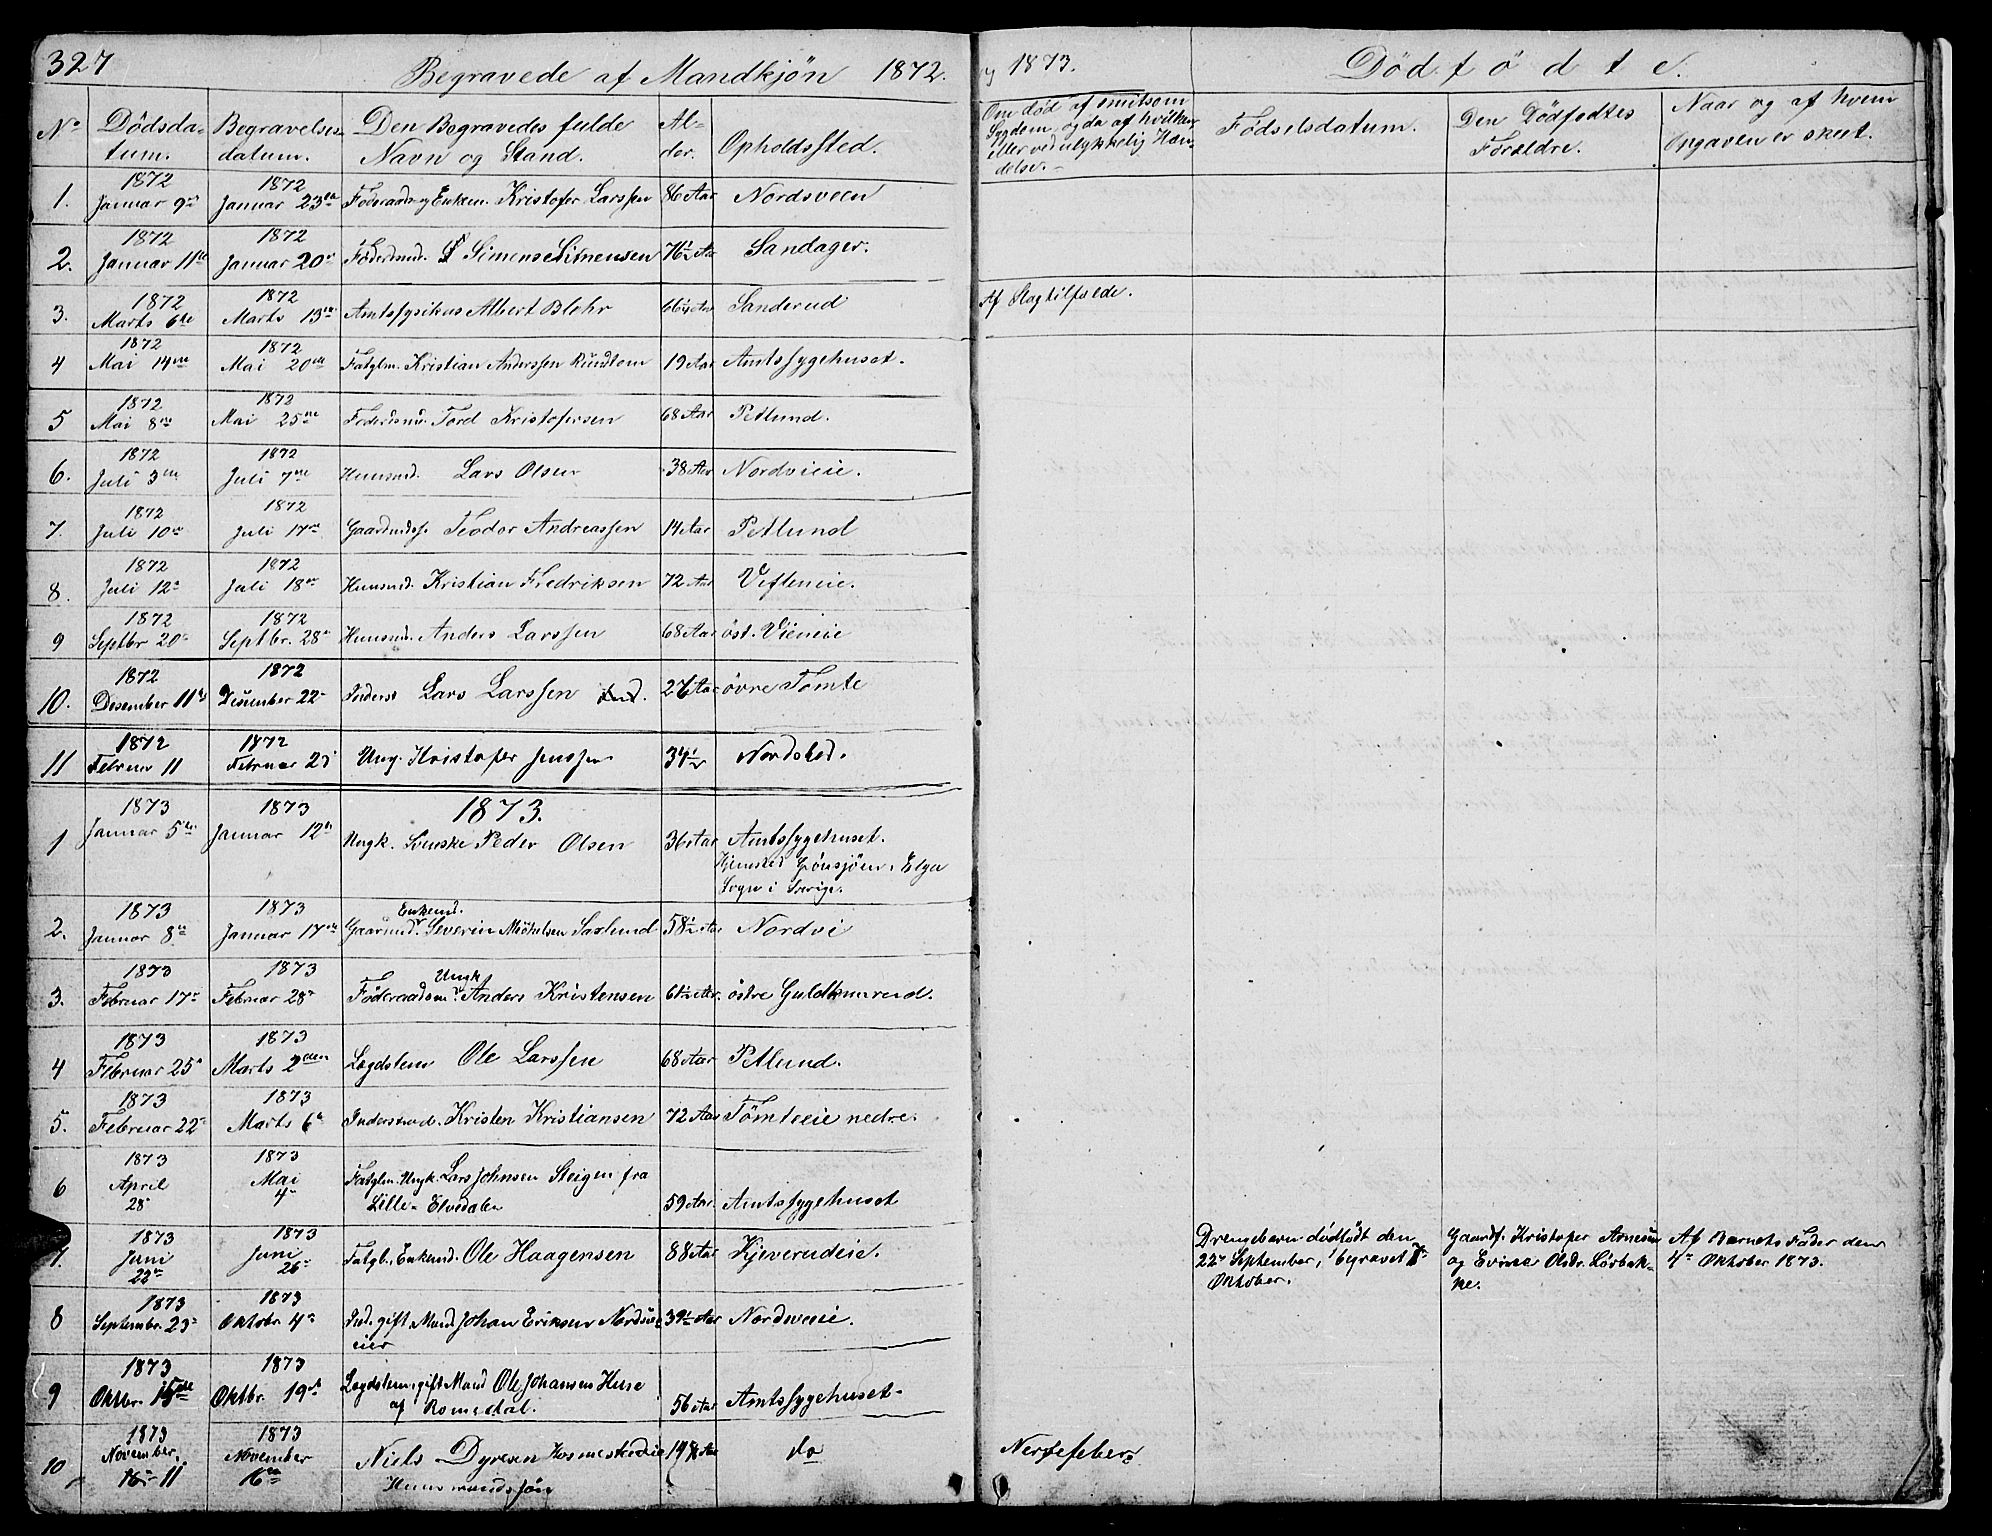 327
Begravede af Mandkjøn 1872.
No Dødsdatum. Begravelsesdatum. Den Begravedes fulde Navn og Stand. Alder. Opholdssted.
1. 1872 Januar 9de 1872 Januar 23de Føderaadsm. og Enkem. Kristofer Larssen 86 Aar Nordsveen
2. 1872 Januar 11te 1872 Januar 20de Føderdsmd. Simensen 76½ Aar Sandager.
3. 1872 Marts 6te 1872 Marts 13de Amtsfysikus Albert Blehr 66 Aar Sanderud
4 1872 Mai 14de 1872 Mai 20de Fatglm. Kristian Anderssen Rundtom 19 Aar Amtssygehuset.
5 1872 Mai 8de 1872 Mai 25de Føderdsmd. Tord Kristofersen 68 Aar Petlund.
6. 1872 Juli 3die 1872 Juli 7de Huusmd. Lars Olsen 38 Aar Nordvieie.
7. 1872 Juli 10de 1872 Juli 17de Gaardmdss. Teodor Andreassen 14 Aar Petlund
8. 1872 Juli 12te 1872 Juli 18de Huusmd. Kristian Fredriksen 72 Aar Vefleneie.
9 1872 Septbr 20de 1872 Septbr. 28de Huusmd. Anders Larssen 68 Aar øst. Vieneie
10. 1872 Desember 11te 1872 Desember 22de Inderst Lars Larssen 27 Aar øvre Tomte
11 1872 Februar 11 1872 Februar 23 Ung. Kristofer Jenssen 34½ Nordstad.
1873.
1 1873 Januar 5te 1873 Januar 12te Ungk. Svenske Peder Olsen 36 Aar Amtssygehuset.
Hjemsted Grönsjöen, Elga
Sogn i Sverige.
2. 1873 Januar 8de 1873 Januar 17de Gaardmd. Enkemd. Severin Mikkelsen Saxlund 58½ Aar Nordvi
3. 1873 Februar 17de 1873 Februar 28de Føderaadsmd. Ungk. Anders Kristensen 61½ Aar. østre Guldkunerud.
4 1873 Februar 25de 1873 Marts 2den Lægdslem Ole Larssen 68 Aar Petlund.
5. 1873 Februar 22de 1873 Marts 6te Inderst Kristen Kristiansen 72 Aar Tømteeie nedre.
6 1873 April 28de 1873 Mai 4de Fatglm. Ungk. Lars Johnsen Steigen fra
Lille-Elvedalen 59 Aar. Amtssygehuset
7. 1873 Juni 22de 1873 Juni 26de Fatgl. Enkemd. Ole Haagensen 88 Aar Kjeverudeie.
8 1873 Septembr. 23de 1873 Oktobr. 4de Ind. gift Mand Johan Eriksen Nordvieeier 39½ Aar Nordvieeie.
9 1873 Oktbr. 15de 1873 Oktbr. 19de Lægdslem, gift Mand Ole Johansen Huse
af Romsdal. 56 Aar Amtssygehuset
10 1873 November 16 11 1873 November 16de Niels Dyresen
Huusmandssøn do
og 1873. Dødfødte.
Om død af smitsom Sygdom, og da af hvilken, eller ved ulykkelig Hændelse. Fødselsdatum. Den Dødfødtes Forældre. Naar og af hvem Opgaven er skeet.
Af Slagtilfælde.
Drengebarn dødfødt den
22de September, begravet
Oktober.
Gaardf. Kristofer Arnesen
og Evine Olsdr. Lørbekke.
Af Barnets Fader den
4de Oktober 1873.
Nervefeber.